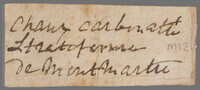 Chaux carbonatée
Stratiforme
De Montmartre